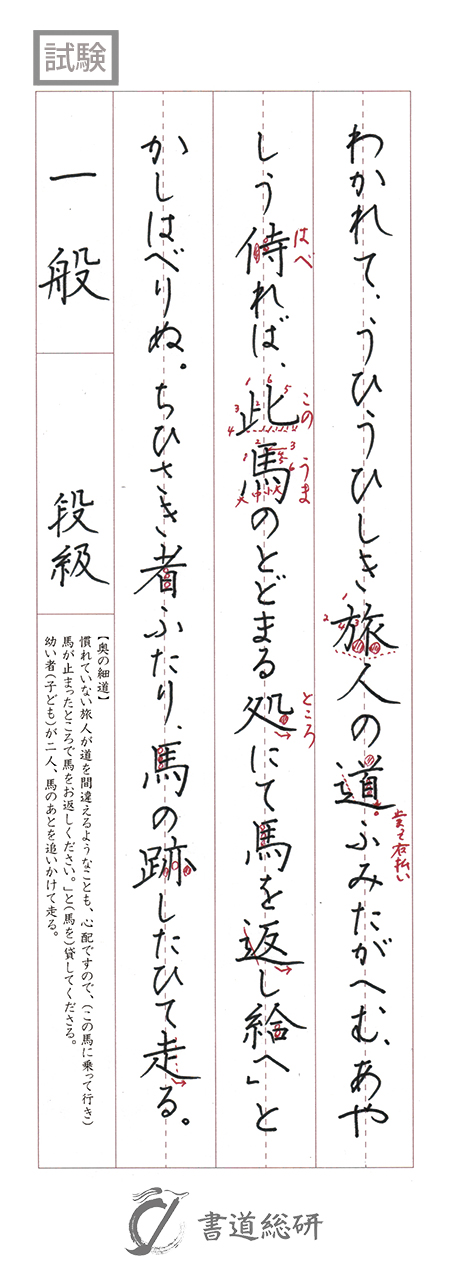 試験
わかれて、うひうひしき旅人の道ふみたがへむ、あや
しう侍れば、此馬のとどまる処にて馬を返し給へ」と
はべ
この うま
ところ
かしはべりぬ。ちひさき者ふたり、馬の跡したひて走る。
一般
段級
【奥の細道】
慣れていない旅人が道を間違えるようなことも、心配ですので、(この馬に乗って行き)
馬が止まったところで馬をお返しください。」と(馬を)貸してくださる。
幼い者(子ども)が二人、馬のあとを追いかけて走る。
書道総研